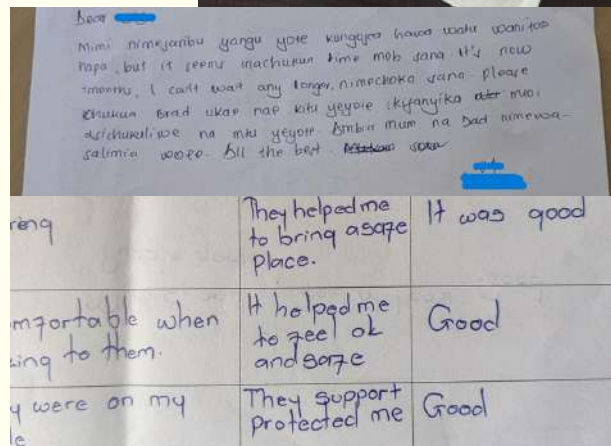 Dear
Mimi nimejaribu yangu yote kongojea hawa watu wanitoe
hapa, but it seems inachukua time mob sana it's now
months, I can't wait any longer, nimechoka sana. Please
chukua Brad ukae nae kitu yeyote ikifanyika
asichukuliwe na mtu yeyote. Ambia mum na Dad nimewa-
salimia wote. All the best.
ring
They helped me
to bring a safe
place.
It was good
mfortable when
ing to them.
It helped me
to feel ok
and safe
Good
y were on my
They support
protected me
Good